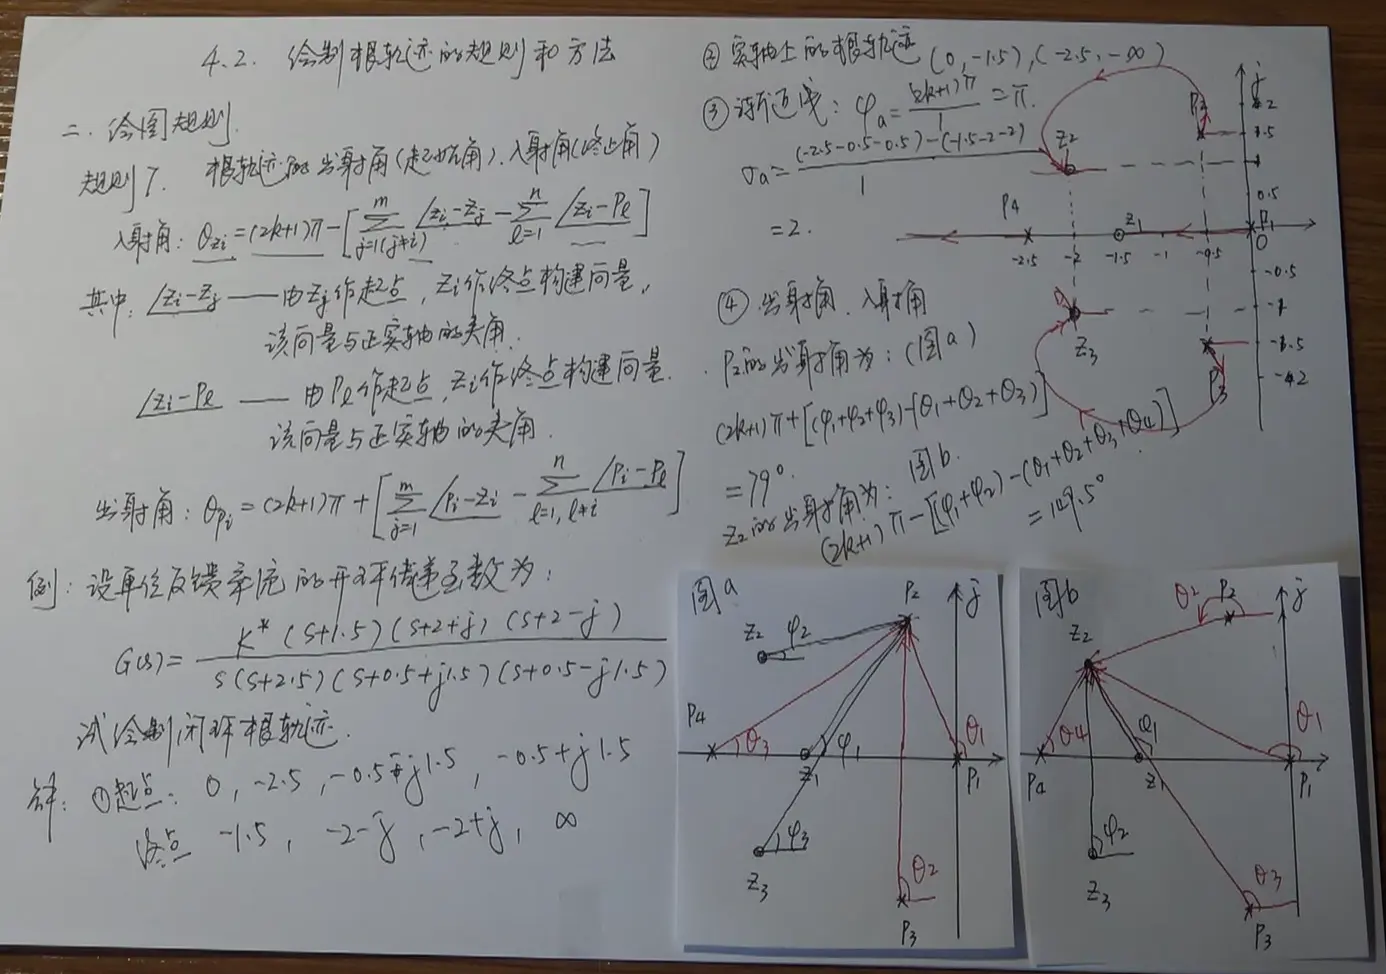 4.2. 绘制根轨迹的规则和方法
二.绘图规则.
规则7. 根轨迹的出射角(起始角).入射角(终止角)
入射角: θzi=(2k+1)π-[∑(m, j=1(j≠i)) ∠zi-zj - ∑(n, l=1) ∠zi-Pl]
其中: ∠zi-zj —— 由zj作起点, zi作终点构建向量,
该向量与正实轴的夹角.
∠zi-Pl —— 由Pl作起点, zi作终点构建向量.
该向量与正实轴的夹角.
出射角: θpi=(2k+1)π+[∑(m, j=1) ∠Pi-zi - ∑(n, l=1, l≠i) ∠Pi-Pl]
例: 设单位反馈系统的开环传递函数为:
G(s)= K*(s+1.5)(s+2+j)(s+2-j) / s(s+2.5)(s+0.5+j1.5)(s+0.5-j1.5)
试绘制闭环根轨迹.
解: ①起点: 0, -2.5, -0.5-j1.5, -0.5+j1.5
终点 -1.5, -2-j, -2+j, ∞
② 实轴上的根轨迹 (0,-1.5),(-2.5,-∞)
③ 渐近线: φa= (2k+1)π / 1 =π.
σa= (-2.5-0.5-0.5)-(-1.5-2-2) / 1
=2.
④ 出射角、入射角
P2的出射角为: (图a)
(2k+1)π+[(φ1+φ2+φ3)-(θ1+θ2+θ3)]
=79°.
图b.
Z2的出射角为:
(2k+1)π-[(φ1+φ2)-(θ1+θ2+θ3+θ4)]
=149.5°
j
2
P2
1.5
Z2
1
0.5
P4
Z1
P1
-2.5
-2
-1.5
-1
-0.5
0
-0.5
-1
Z3
-1.5
P3
-2
图a
P2
j
Z2
φ2
P4
θ3
Z1
φ1
θ1
P1
φ3
Z3
θ2
P3
图b
θ2
P2
j
Z2
θ4
φ1
θ1
P4
Z1
P1
φ2
Z3
θ3
P3